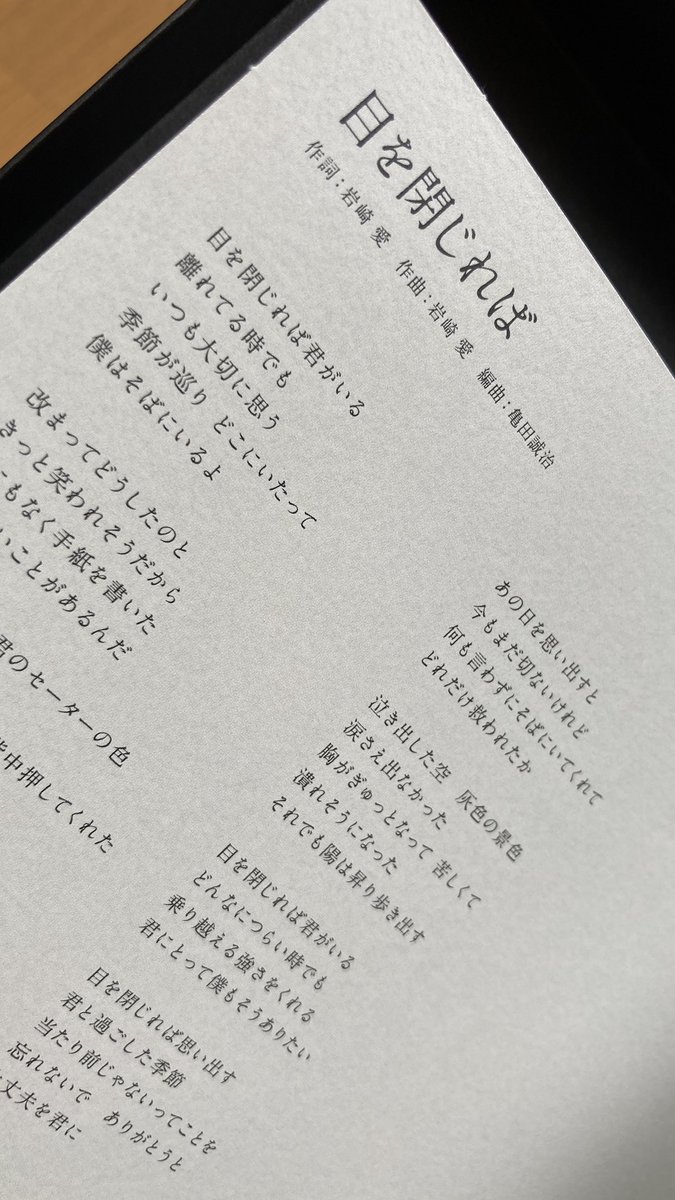 目を閉じれば
作詞：岩崎 愛　作曲：岩崎 愛　編曲：亀田誠治
目を閉じれば君がいる
離れてる時でも
いつも大切に思う
季節が巡り　どこにいたって
僕はそばにいるよ
改まってどうしたのと
きっと笑われそうだから
もなく手紙を書いた
いことがあるんだ
君のセーターの色
中押してくれた
あの日を思い出すと
今もまだ切ないけれど
何も言わずにそばにいてくれて
どれだけ救われたか
泣き出した空　灰色の景色
涙さえ出なかった
胸がぎゅっとなって 苦しくて
潰れそうになった
それでも陽は昇り歩き出す
目を閉じれば君がいる
どんなにつらい時でも
乗り越える強さをくれる
君にとって僕もそうありたい
目を閉じれば思い出す
君と過ごした季節
当たり前じゃないってことを
忘れないで　ありがとうと
丈夫を君に